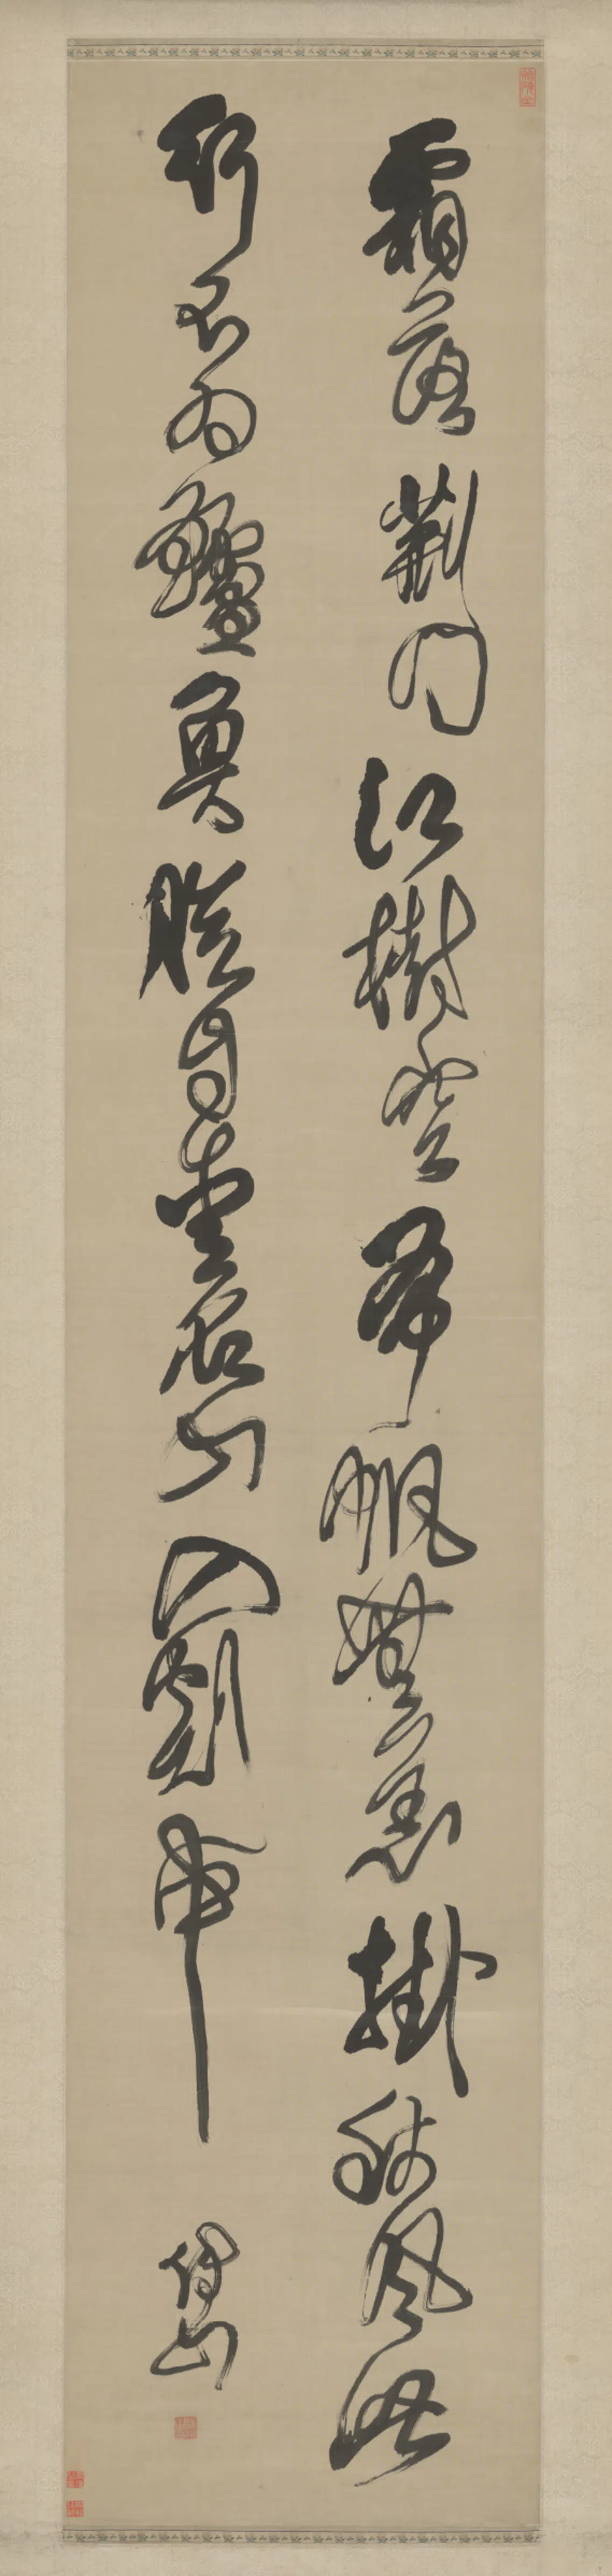 霜落荊門江樹空布帆無恙掛秋風此
行不為鱸魚膾自愛名山入剡中 傅山